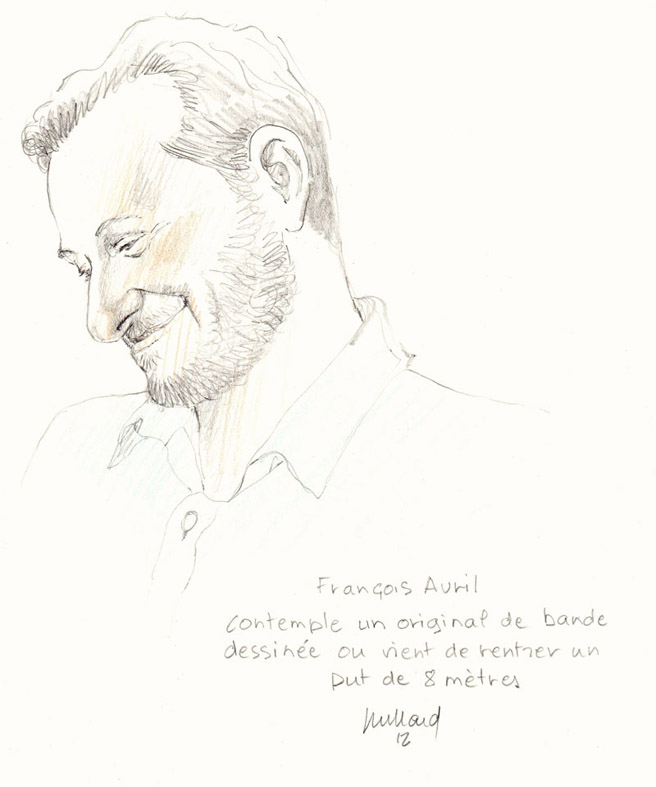 François Avril
contemple un original de bande
dessinée ou vient de rentrer un
put de 8 mètres
12